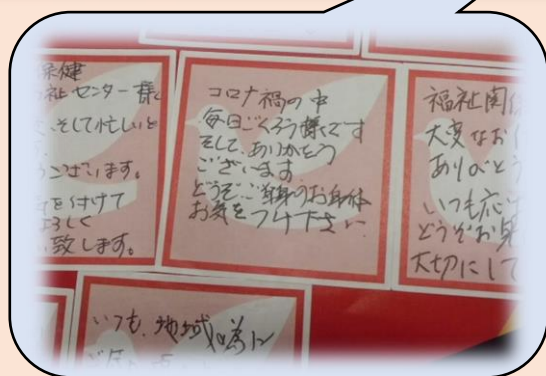 保健
祉センター様
そして忙しいと
ございます。
を付けて
よろしく
致します。
コロナ禍の中
毎日ごくろう様です
そして、ありがとう
ございます
どうぞご自身のお身体
お気をつけ下さい
福祉関係
大変なお
ありがとう
いつも応
どうぞお身
大切にして
いつも、地域の為に